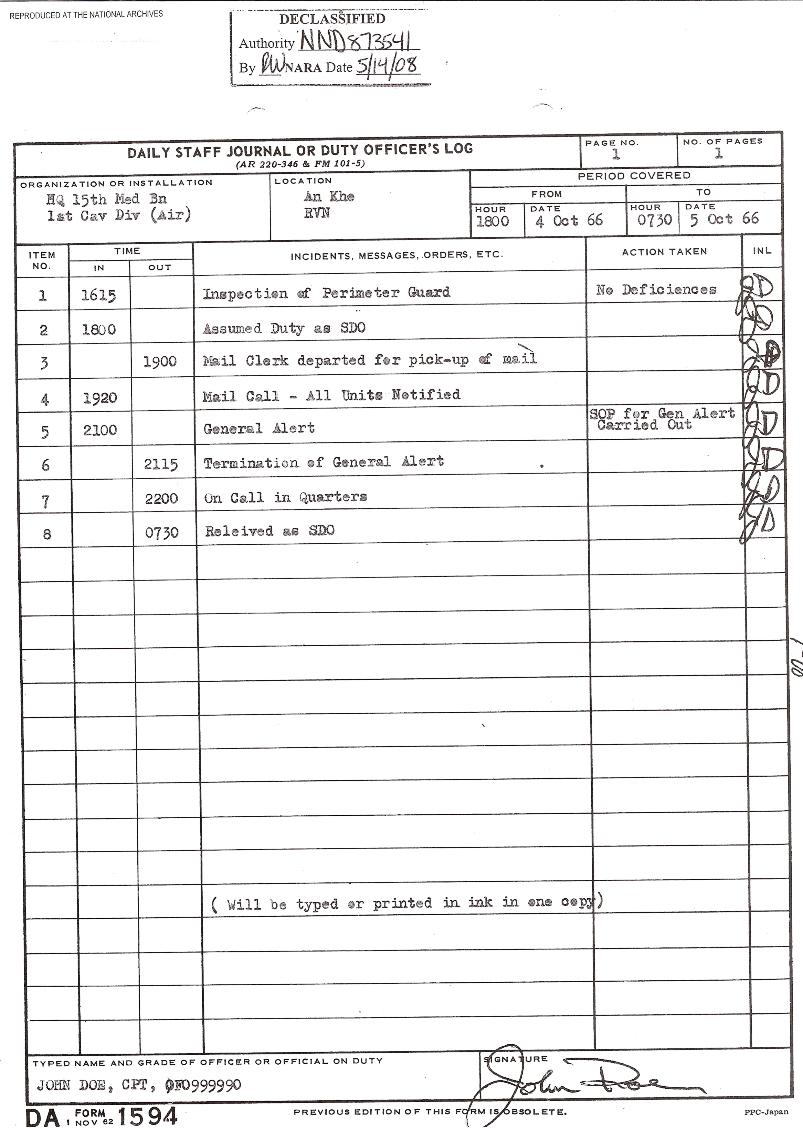 REPRODUCED AT THE NATIONAL ARCHIVES
DECLASSIFIED
Authority NND873541
By NARA Date 5/14/08
DAILY STAFF JOURNAL OR DUTY OFFICER'S LOG
(AR 220-346 & FM 101-5)
PAGE NO.
1
NO. OF PAGES
1
ORGANIZATION OR INSTALLATION
HQ 15th Med Bn
1st Cav Div (Air)
LOCATION
An Khe
RVN
PERIOD COVERED
FROM TO
HOUR DATE HOUR DATE
1800 4 Oct 66 0730 5 Oct 66
ITEM NO. TIME INCIDENTS, MESSAGES, ORDERS, ETC. ACTION TAKEN INL
IN OUT
1 1615 Inspection of Perimeter Guard No Deficiences JD
2 1800 Assumed Duty as SDO JD
3 1900 Mail Clerk departed for pick-up of mail JD
4 1920 Mail Call - All Units Notified JD
5 2100 General Alert SOP for Gen Alert Carried Out JD
6 2115 Termination of General Alert JD
7 2200 On Call in Quarters JD
8 0730 Releived as SDO JD
( Will be typed or printed in ink in one copy)
TYPED NAME AND GRADE OF OFFICER OR OFFICIAL ON DUTY
JOHN DOE, CPT, OF0999990
SIGNATURE
John Doe
DA FORM 1594
1 NOV 62
PREVIOUS EDITION OF THIS FORM IS OBSOLETE.
PPC-Japan